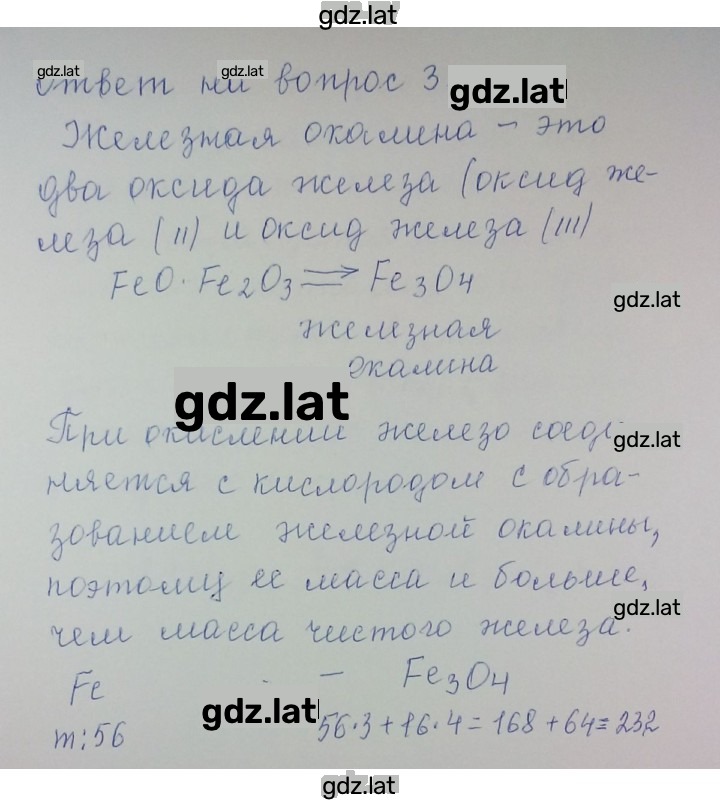 gdz.lat
gdz.lat gdz.lat
ответ на вопрос 3 gdz.lat
Железная окалина – это
два оксида железа (оксид же-
леза (II) и оксид железа (III)
FeO·Fe₂O₃ ⇒ Fe₃O₄
железная gdz.lat
окалина
gdz.lat
При окислении железо соеди- gdz.lat
няется с кислородом с обра-
зованием железной окалины,
поэтому ее масса и больше, gdz.lat
чем масса чистого железа.
Fe – Fe₃O₄
gdz.lat
m:56 56·3+16·4=168+64=232
gdz.lat